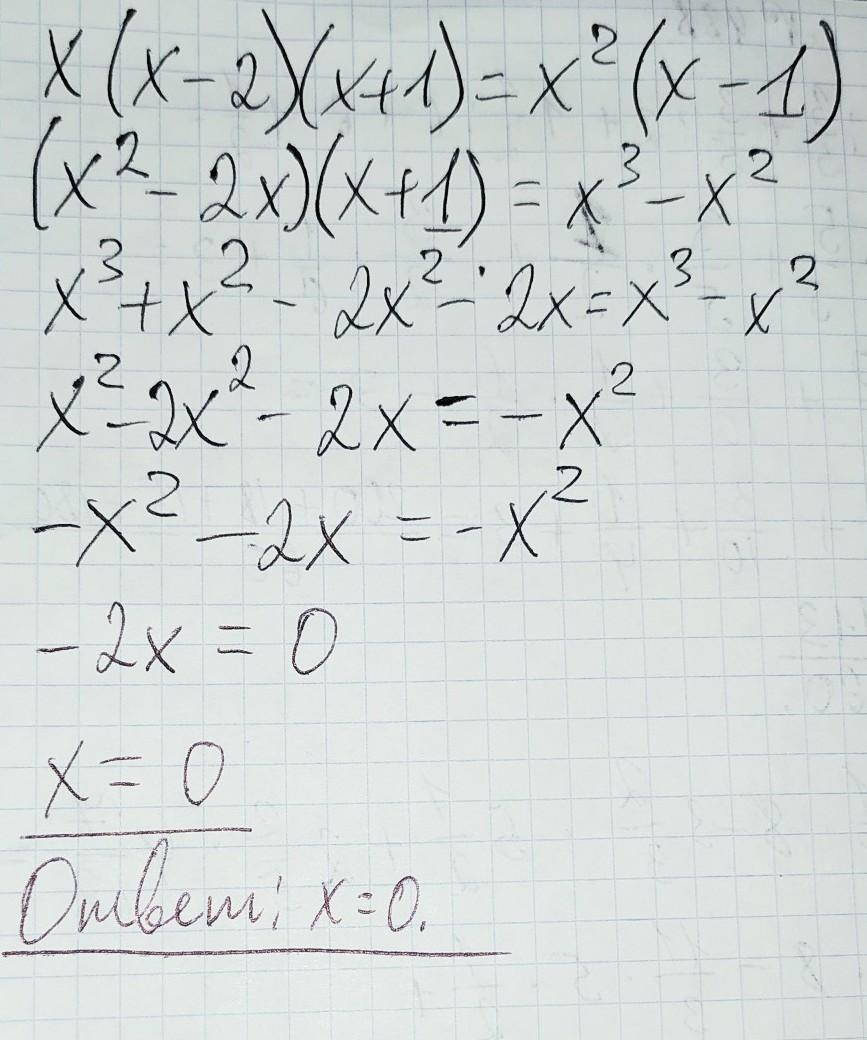 x(x-2)(x+1)=x²(x-1)
(x²-2x)(x+1)=x³-x²
x³+x²-2x²-2x=x³-x²
x²-2x²-2x=-x²
-x²-2x=-x²
-2x=0
x=0
Ответ: x=0.